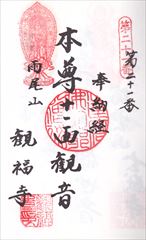 第二十一番
奉納経
本尊十一面観音
雨尾山
観福寺